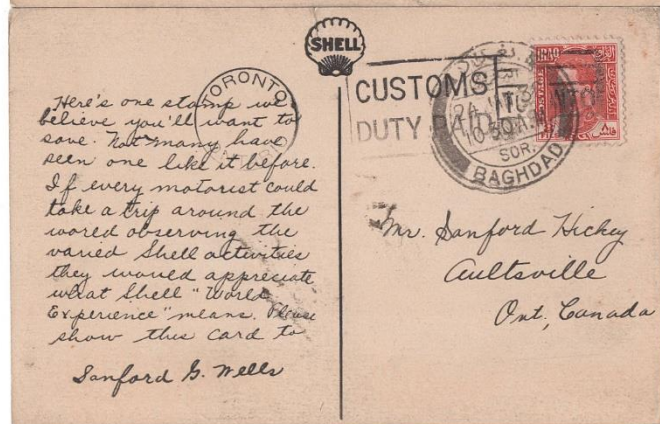 SHELL
CUSTOMS
DUTY PAID
TORONTO
IRAQ
POSTAGE
10-30 AM
SOR.
BAGHDAD
Here's one stamp we
believe you'll want to
save. Not many have
seen one like it before.
If every motorist could
take a trip around the
world observing the
varied Shell activities
they would appreciate
what Shell "World
Experience" means. Please
show this card to
Sanford G. Wells
Mr. Sanford Hickey
Aultsville
Ont., Canada